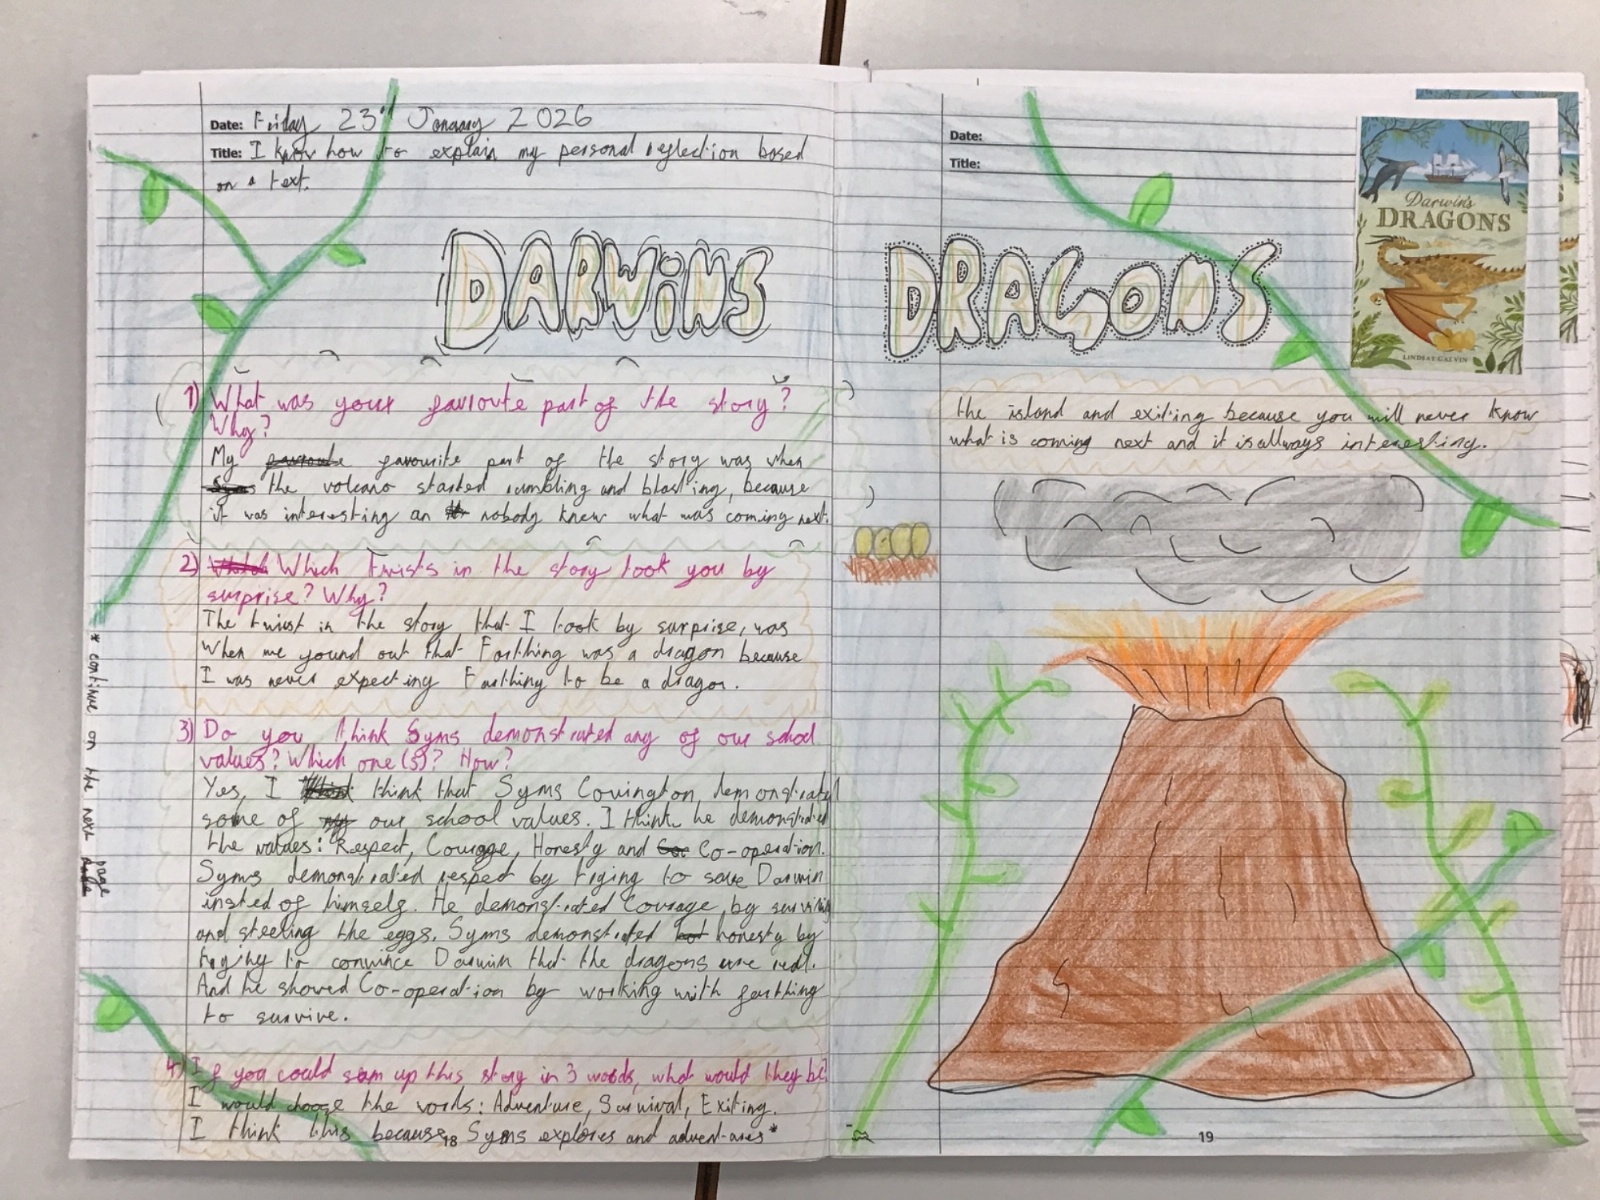 Date: Friday 23rd January 2026
Title: I know how to explain my personal reflection based
on a text.
DARWiNS
1) What was your favroute part of the story?
Why?
My favroute favourite part of the story was when
Syms the volcano started rumbling and blasting, because
it was interesting an nobody knew what was coming next.
2) Which Which twists in the story took you by
surprise? Why?
The twist in the story that I took by surprise, was
When we found out that Farthing was a dragon because
I was never expecting Farthing to be a dragon.
3) Do you think Syms demonstrated any of our school
values? Which one(s)? How?
Yes, I think that Syms Covington demonstrated
some of my our school values. I think he demonstrated
the values: Respect, Courage, Honesty and Coo Co-operation.
Syms demonstrated respect by trying to save Darwin
insted of himself. He demonstrated Courage by surviving
and steeling the eggs. Syms demonstrated hot honesty by
trying to convince Darwin that the dragons are real.
And he showed Co-operation by working with farthing
to survive.
4) If you could sum up this story in 3 words, what would they be?
I would choose the words: Adventure, Survival, Exiting.
I think this because Syms explores and adventures*
18
* continue on the next page
Date:
Title:
Darwin's
DRAGONS
LINDSAY GALVIN
DRAGONS
the island and exiting because you will never know
what is coming next and it is allways interesting.
19